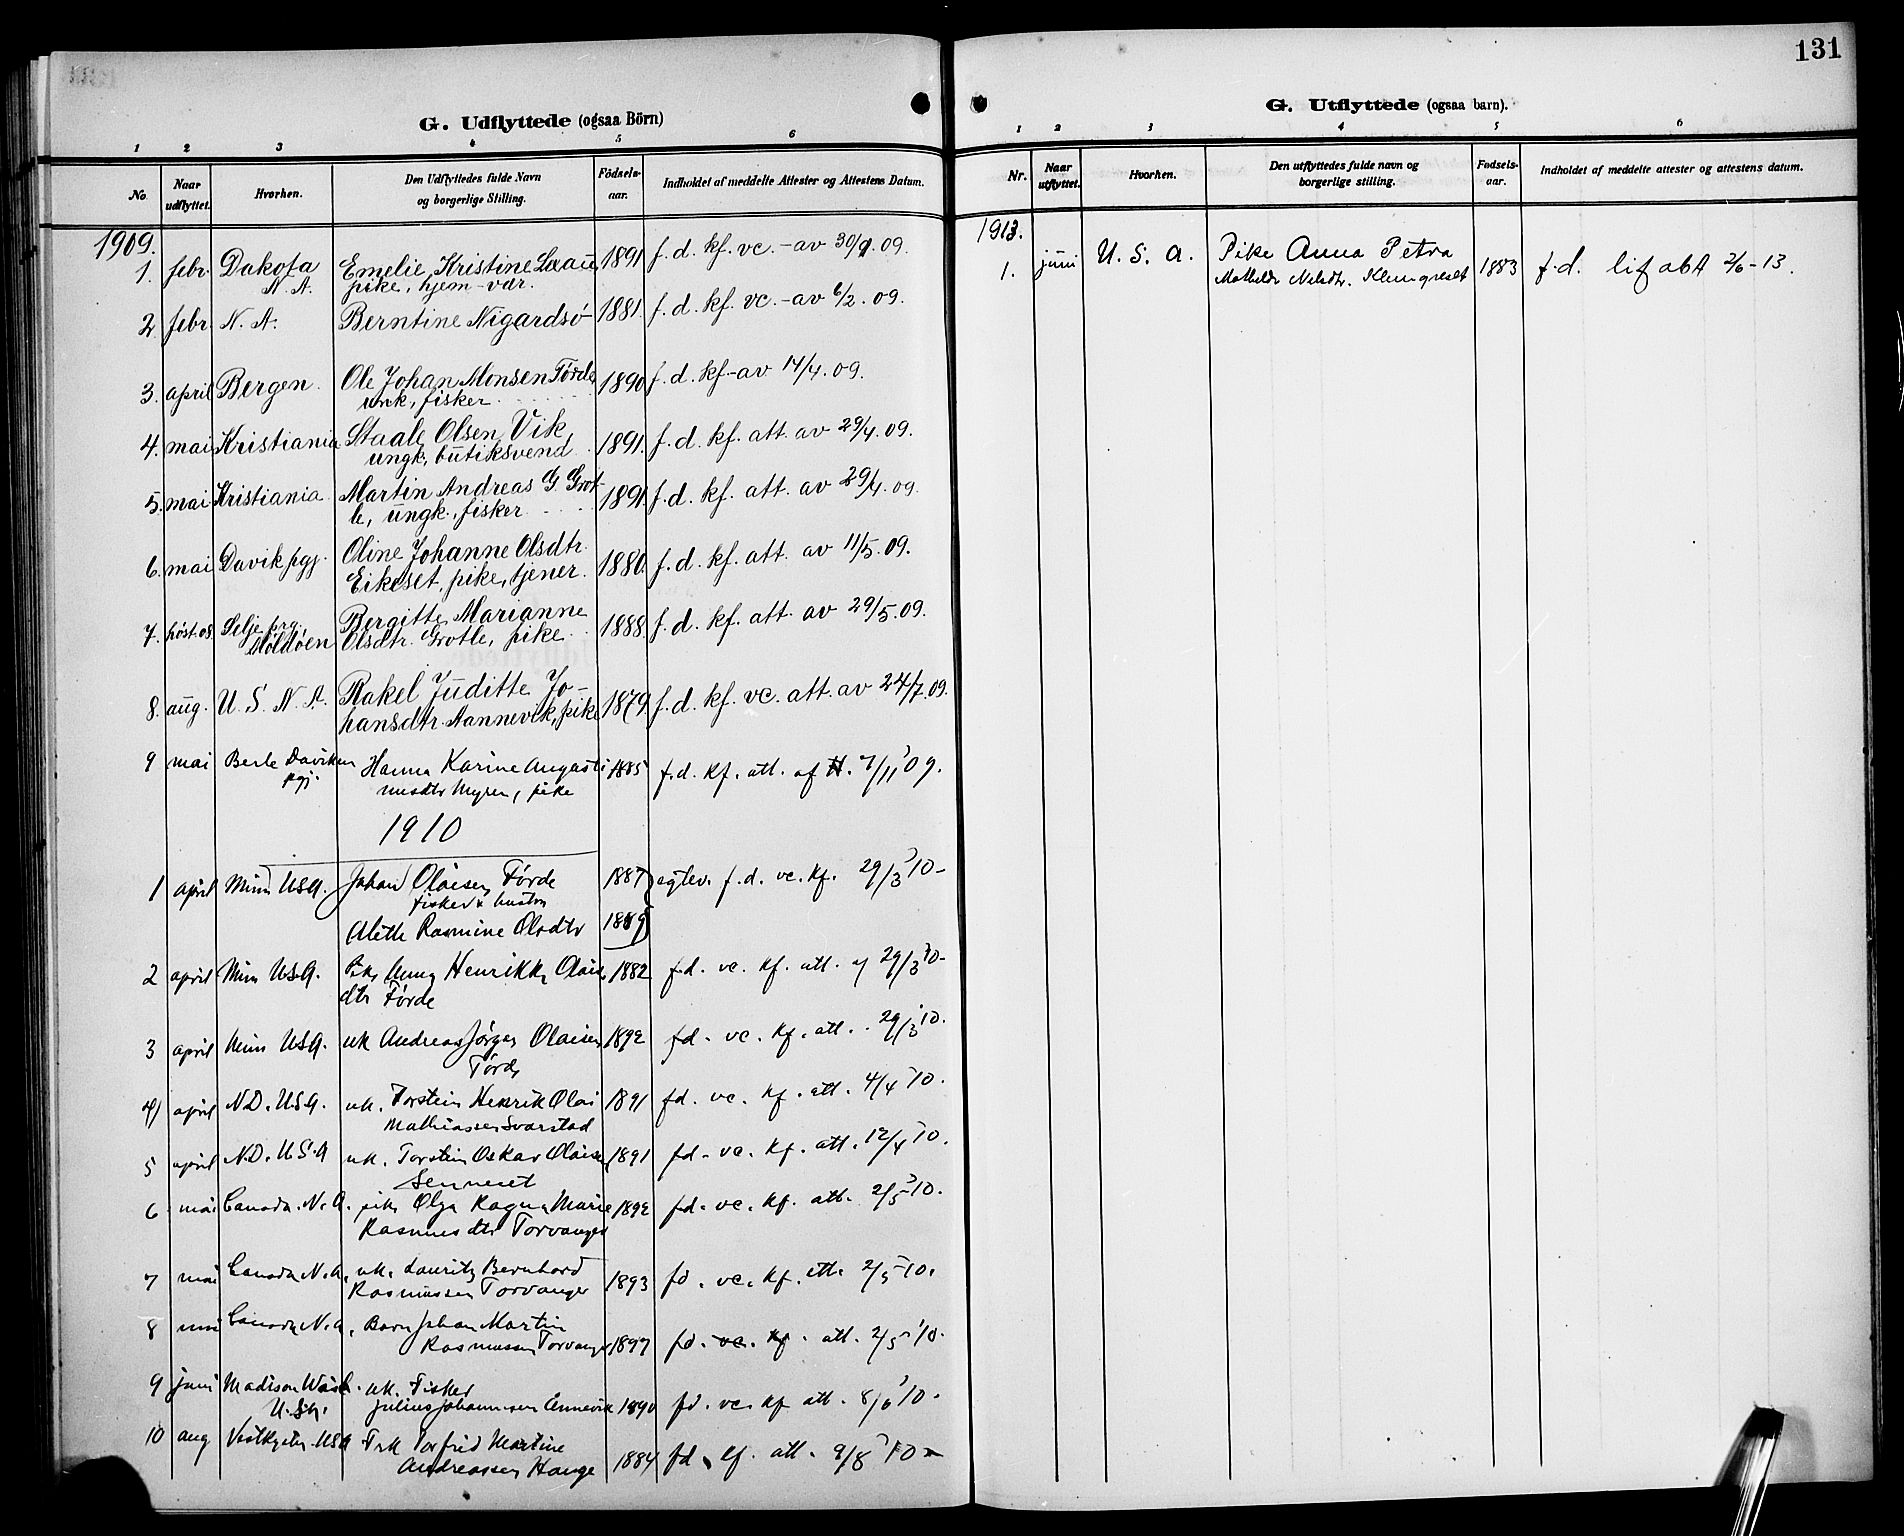 G. Udflyttede (ogsaa Börn)
1 2 3 4 5 6
No.
Naar udflyttet.
Hvorhen.
Den Udflyttedes fulde Navn og borgerlige Stilling.
Fødsels-aar.
Indholdet af meddelte Attester og Attestens Datum.
1909.
1. febr. Dakota Emelie Kristine 1891 f. d. kf. vc. - av 30/1 09.
N. A. pike, hjem-vær.
2 febr. N. A. Berntine Nigardsø 1881. f. d. kf. vc. - av 6/2. 09.
3. april Bergen. Ole Johan Monsen Førde 1890 f. d. kf. - av 14/4. 09.
unk, fisker
4. mai Kristiania Staale Olsen Vik, 1891. f. d. kf. att. av 29/4. 09.
ungk, butiksvend
5. mai Kristiania Martin Andreas G. Grot- 1891. f. d. kf. att. av 29/4. 09.
le, ungk. fisker
6. mai Davik pgj. Oline Johanne Olsdtr. 1880. f. d. kf. att. av 11/5. 09.
Eikeset, pike, tjener.
7. høst. 08. Selje prg. Bergitte Marianne 1888. f. d. kf. att. av 29/5. 09.
Moldøen Olsdtr. Grotle, pike
8. aug. U. S. N. A. Rakel Juditte Jo- 1879. f. d. kf. vc. att. av 24/7. 09.
hansdtr. Aannevik, pike
9 mai Berle Daviken Hanna Karine Augusti 1885 f. d. kf. att. af 7/11 09.
pgj. nusdtr Myren, pike
1910
1 april Minn USA. Johan Olaisen Førde 1887 f. d. vc. kf. 29/3 10-
fisker & hustru
Alette Rasmine Olsdtr 1889
2 april Minn USA. Pike Anna Henrikke Olais 1882 f.d. vc. kf. att. 29/3 10-
dtr Førde
3 april Minn USA. uk Andreas Jørgen Olaisen 1892 fd. vc. kf. att. 29/3 10.
Førde
4) april N.D. USA. uk. Torstein Henrik Olai 1891 fd. vc. kf. att. 4/4 10.
Mathiassen Svarstad
5 april N.D. U.S.A uk. Torstein Oskar Olaisen 1891 fd. vc. kf. att. 12/4 10.
Senneset
6 mai Canada. N. A. pike Olga Ragna Marie 1892 fd. vc. kf. att. 2/5 10.
Rasmusdtr Torvanger
7 mai Canada N. A. uk. Lauritz Bernhard 1893 fd. vc. kf. att. 2/5 10.
Rasmussen Torvanger
8 mai Canada N. A. Barn Johan Martin
Rasmussen Torvanger 1897 fd. vc. kf. att. 2/5 10.
9 juni Madison Wash. uk. Fisker
U.S.A. Julius Johannesen Annevik 1890 fd. vc. kf att. 8/6 10.
10 aug USA Torfrid Martine
Andreassen Hauge 1884 fd. att. 9/8 10
131
G. Utflyttede (ogsaa barn).
1 2 3 4 5 6
Nr.
Naar utflyttet.
Hvorhen.
Den utflyttedes fulde navn og borgerlige stilling.
Fødsels-aar.
Indholdet af meddelte attester og attestens datum.
1913.
1. juni U. S. A. Pike Anna Petra
Mathilde Nilsdtr. 1883 f. d. 2/6-13.